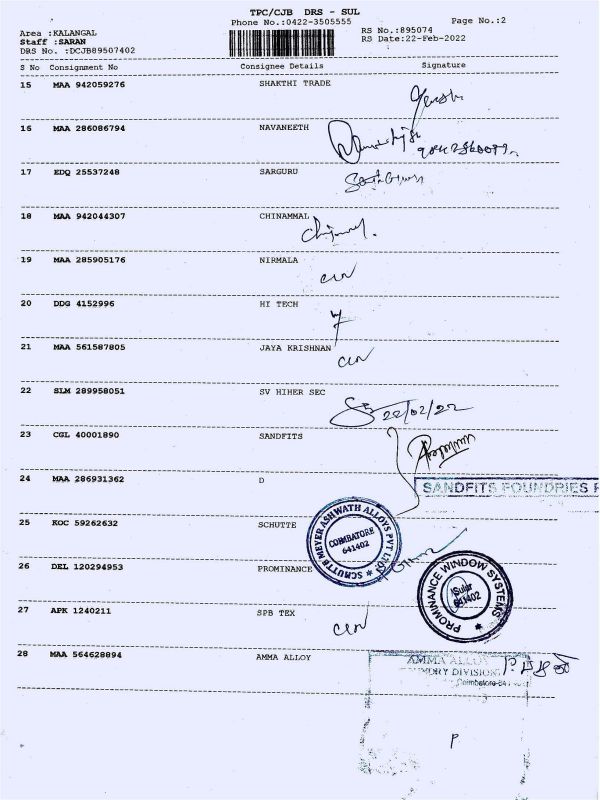 TPC/CJB DRS - SUL
Phone No.:0422-3505555 Page No.:2
Area :KALANGAL RS No.:895074
Staff :SARAN RS Date:22-Feb-2022
DRS No. :DCJB89507402
S No Consignment No Consignee Details Signature
15 MAA 942059276 SHAKTHI TRADE
16 MAA 286086794 NAVANEETH
17 EDQ 25537248 SARGURU
18 MAA 942044307 CHINAMMAL
19 MAA 285905176 NIRMALA
20 DDG 4152996 HI TECH
21 MAA 561587805 JAYA KRISHNAN
22 SLM 289958051 SV HIHER SEC
22/02/22
23 CGL 40001890 SANDFITS
24 MAA 286931362 D
SANDFITS FOUNDRIES P
25 KOC 59262632 SCHUTTE
SCHUTTE MEYER ASHWATH ALLOYS PVT LTD
COIMBATORE
641402
26 DEL 120294953 PROMINANCE
PROMINANCE WINDOW SYSTEMS
Sulur
641402
27 APK 1240211 SPB TEX
28 MAA 564628894 AMMA ALLOY
AMMA ALLOY
DIVISION
Coimbatore-64
P